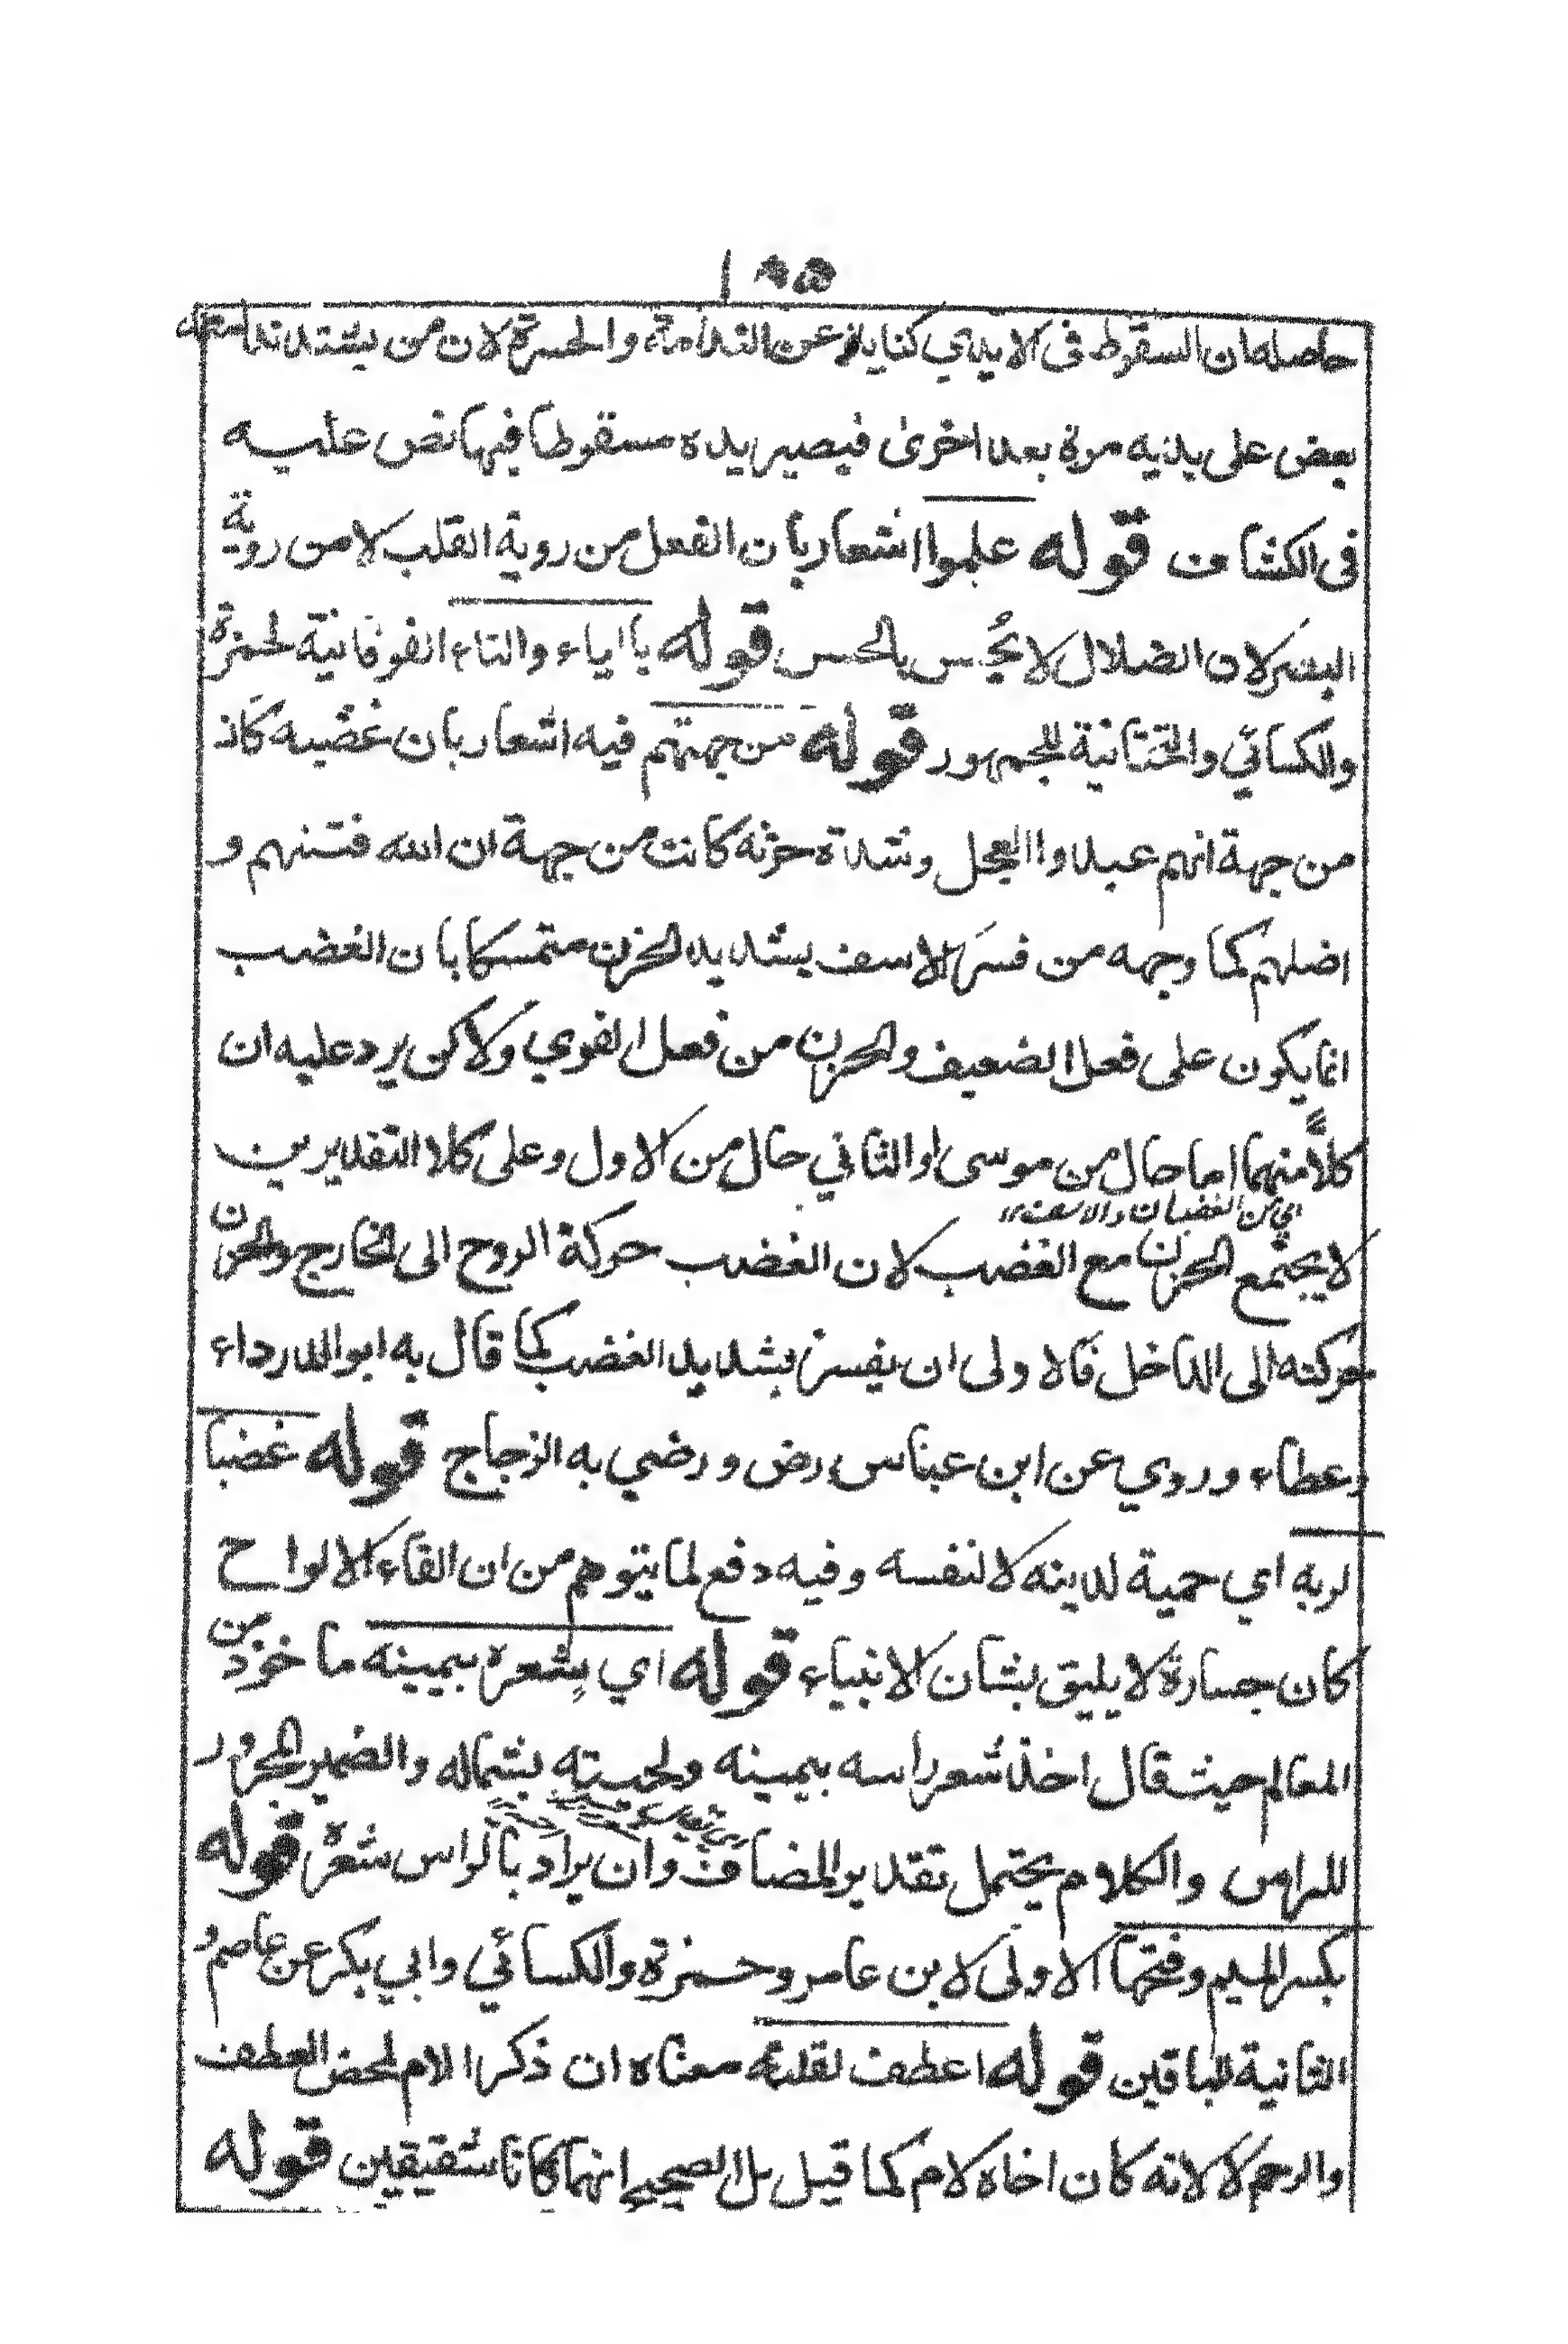 حاصله ان السقوط فى الايدي كناية عن الندامة والحسرة لان من يشتد ندامته
بعض على يديه مرة بعد اخرىٰ فيصير يده مسقوطا فيها نص عليه
فى الكشاف قوله علموا اشعار بان الفعل من روية القلب لا من روية
البصر لان الضلال لا يُحس بالحس قوله بالياء والتاء الفوقانية لحمزة
والكسائي والتحتانية للجمهور قوله من جهتهم فيه اشعار بان غضبه كان
من جهة انهم عبدوا العجل وشدة حزنه كانت من جهة ان الله فتنهم و
اضلهم كما وجهه من فسر الاسف بشديد الحزن متمسكا بان الغضب
انما يكون على فعل الضعيف والحزن من فعل القوي ولاكن يرد عليه ان
كلاً منهما اما حال من موسى او الثاني حال من الاول وعلى كلا التقديرين
اي من الغضبان والاسف
لا يجتمع الحزن مع الغضب لان الغضب حركة الروح الى الخارج والحزن
حركته الى الداخل فالاولى ان يفسر بشديد الغضب كما قال به ابو الدرداء
وعطاء وروي عن ابن عباس رض ورضي به الزجاج قوله غضبا
لربه اي حمية لدينه لا لنفسه وفيه دفع لما يتوهم من ان القاء الالواح
كان جسارة لا يليق بشان الانبياء قوله اي بشعره بيمينه ماخوذ من
المعالم حيث قال اخذ شعر راسه بيمينه ولحيته بشماله والضمير المجرور
للراس والكلام يحتمل تقدير المضاف وان يراد بالراس شعره قوله
بكسر الميم وفتحها الاولى لابن عامر وحمزة والكسائي وابي بكر عن عاصم و
الثانية للباقين قوله اعطف لقلبه معناه ان ذكر الام لمحض العطف
والرحم لا لانه كان اخاه لام كما قيل بل الصحيح انهما كانا شقيقين قوله